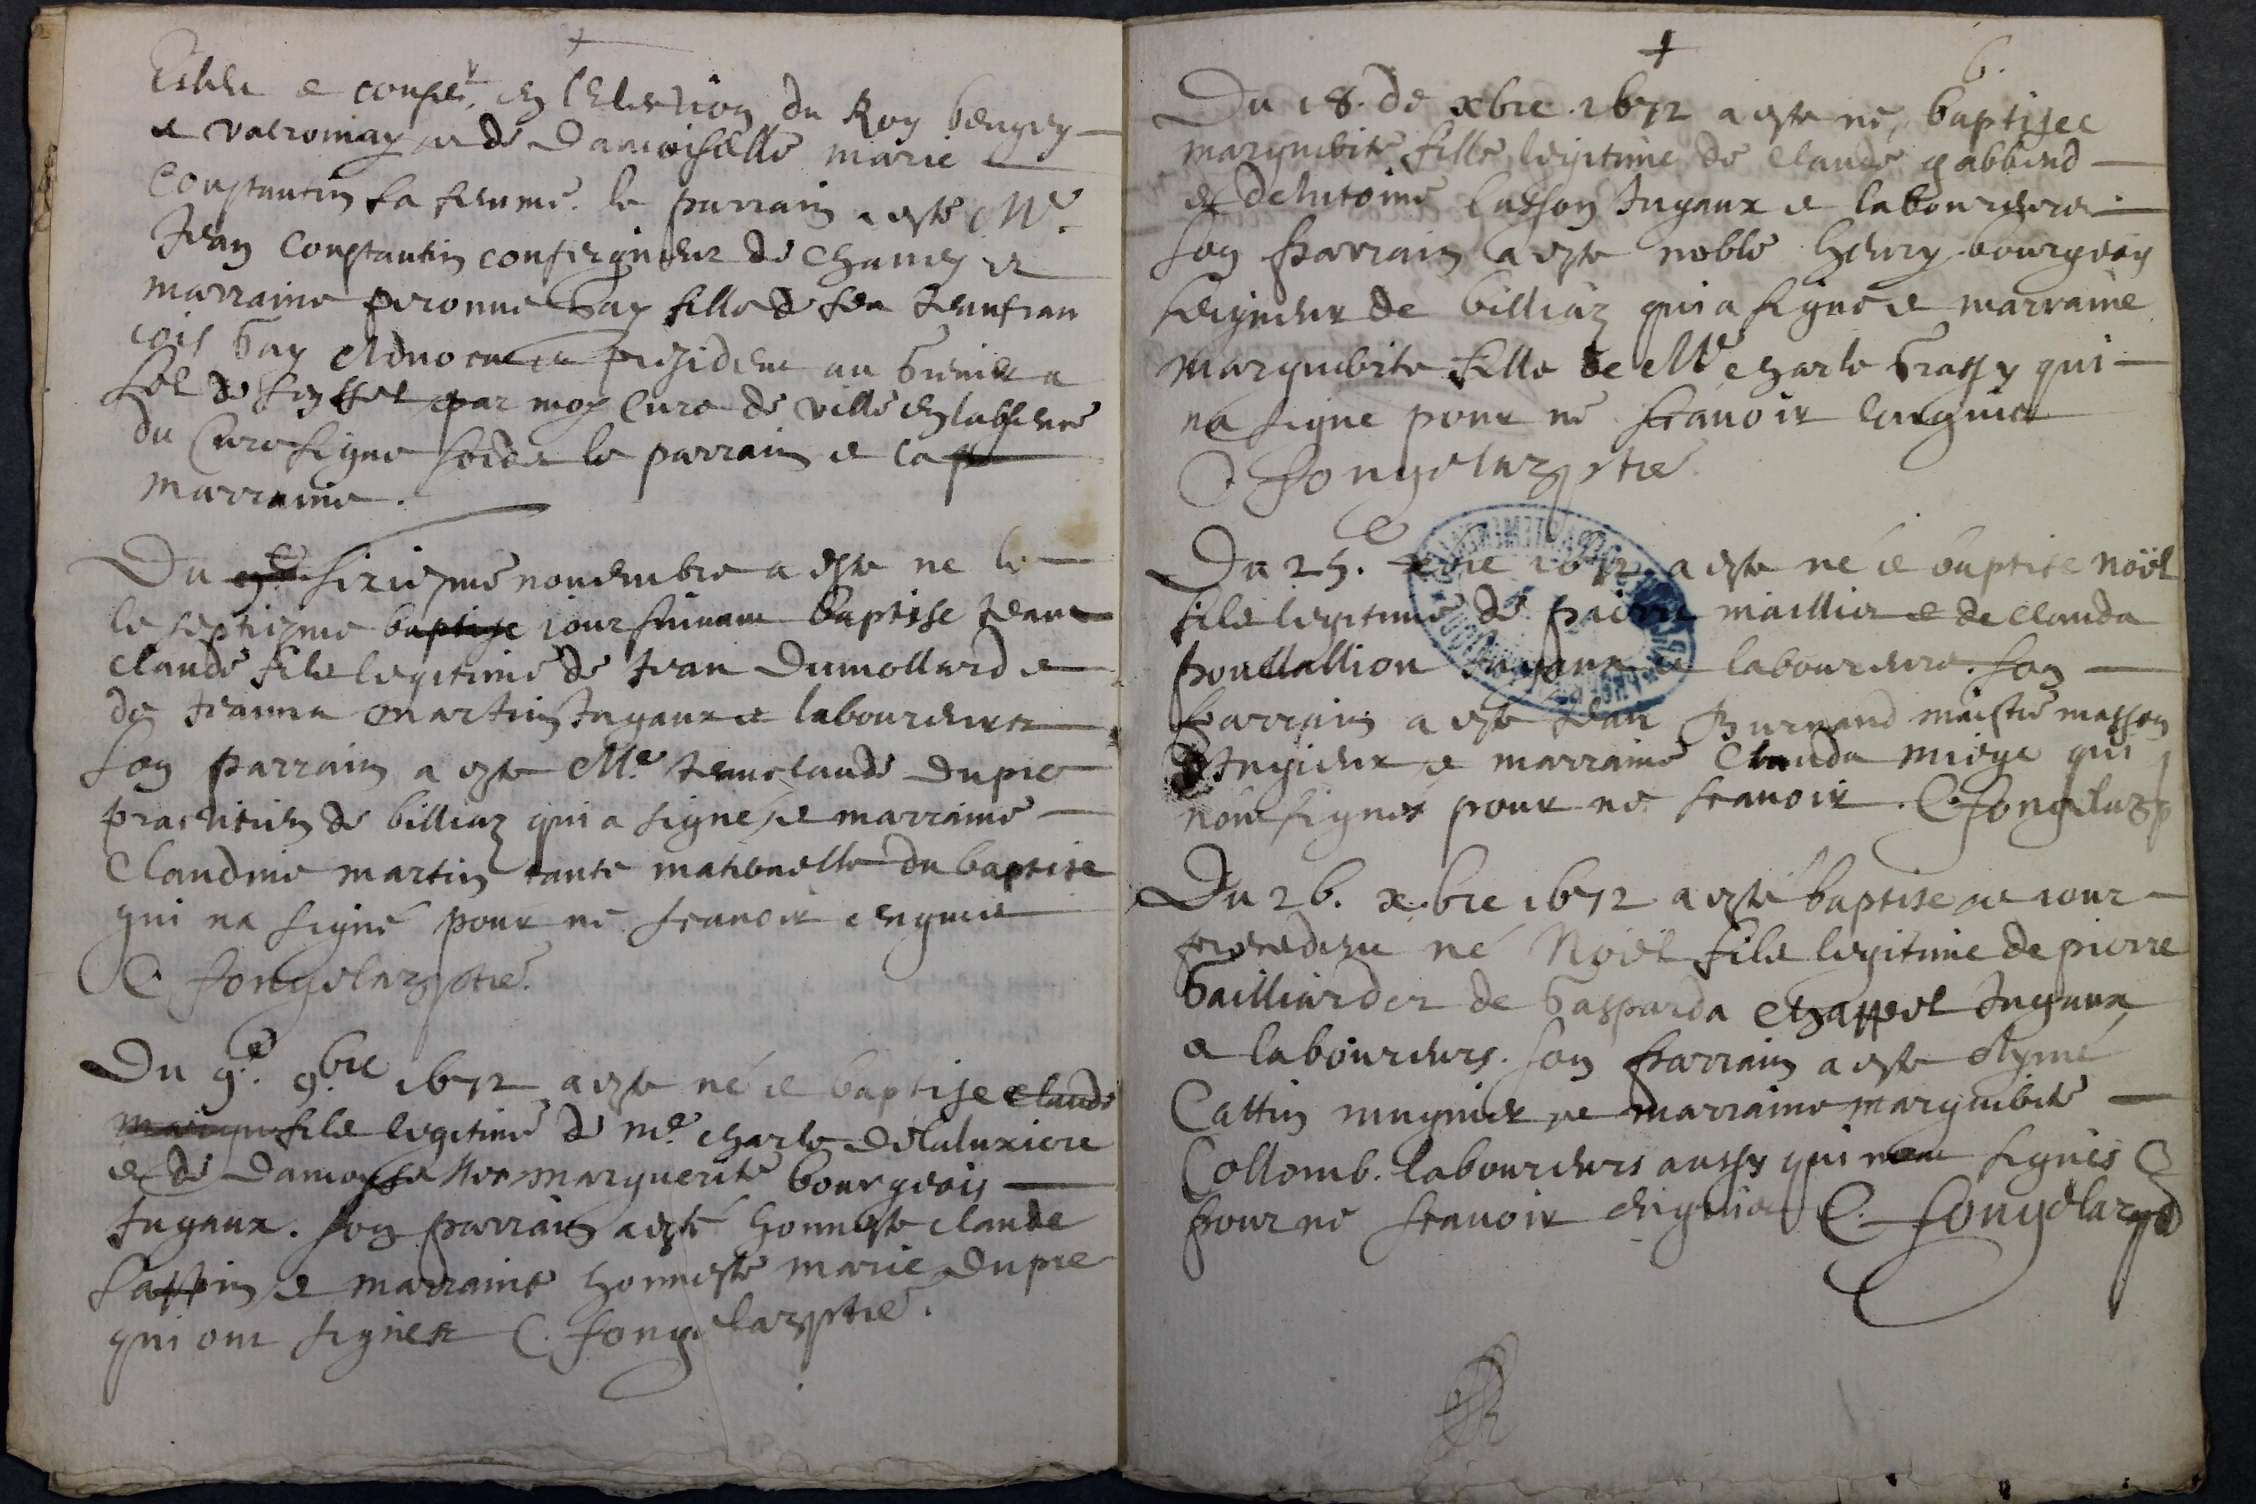 Esleu e conse.r en l'Election du Roy beugey
e valromay e de Damoiselle marie
Constantin sa femme. le parrain a esté Me.
Jean Constantin conseigneur de Chaney et
marraine peronne Gay fille de feu Jeanfran
cois Gay Advocat et president au Grenier a
Sel de Seyssel par moy Cure de ville en labsence
du Cure signe le parrain e la
marraine.
Du sixiesme nouembre a este ne le
le septiesme baptise iour suiuant baptisse Jean
claude fils legitime de Jean Dumollard e
de Jeanna Martin Jugaux e laboureurs
son parrain a este Me. Jeanclaude dupre
practicien de billiaz qui a signé e marraine
Claudine martin tante maternelle du baptise
qui na signé pour ne scauoir enquis
C. fongelaz ptre.
Du 9.e 9.bre 1672 a este né e baptise claude
fils legitime de me. charle Delaluxiere
e de Damoyselle marguerite bourgeois
Jugaux. son parrain a esté honneste claude
e marraine honneste marie dupre
qui ont signer C. fongelaz ptre.
6.
Du 18. de xbre. 1672 a este né, baptisee
marguerite fille legitime de claude gabbend
e de Antoine lasson Jugaux e laboureurs
son parrain a este noble henry bourgeois
seigneur de billiaz qui a signé e marraine
marguerite fille de Me charle Grassy qui
na signe pour ne scauoir enquise
C fongelaz ptre
Du 25. xbre 1672. a este né e baptise noël
fils legitime de pierre maillier e de clauda
poullallion Jugaux e laboureurs. son
parrain a este Jean Burnand maistre masson
d'Ingieux e marraine Clauda miege qui
nont signés pour ne scauoir. C fongelaz p
Du 26. x.bre 1672 a esté baptise e iour
precedent né Noël fils legitime de pierre
Gailliard er de Gasparda Chappel Jugaux
e laboureurs. son parrain a este Aymé
Cattin mugnier e marraine marguerite
Collomb. laboureurs aussy qui nont signés
pour ne scauoir enquis C. fongelaz p